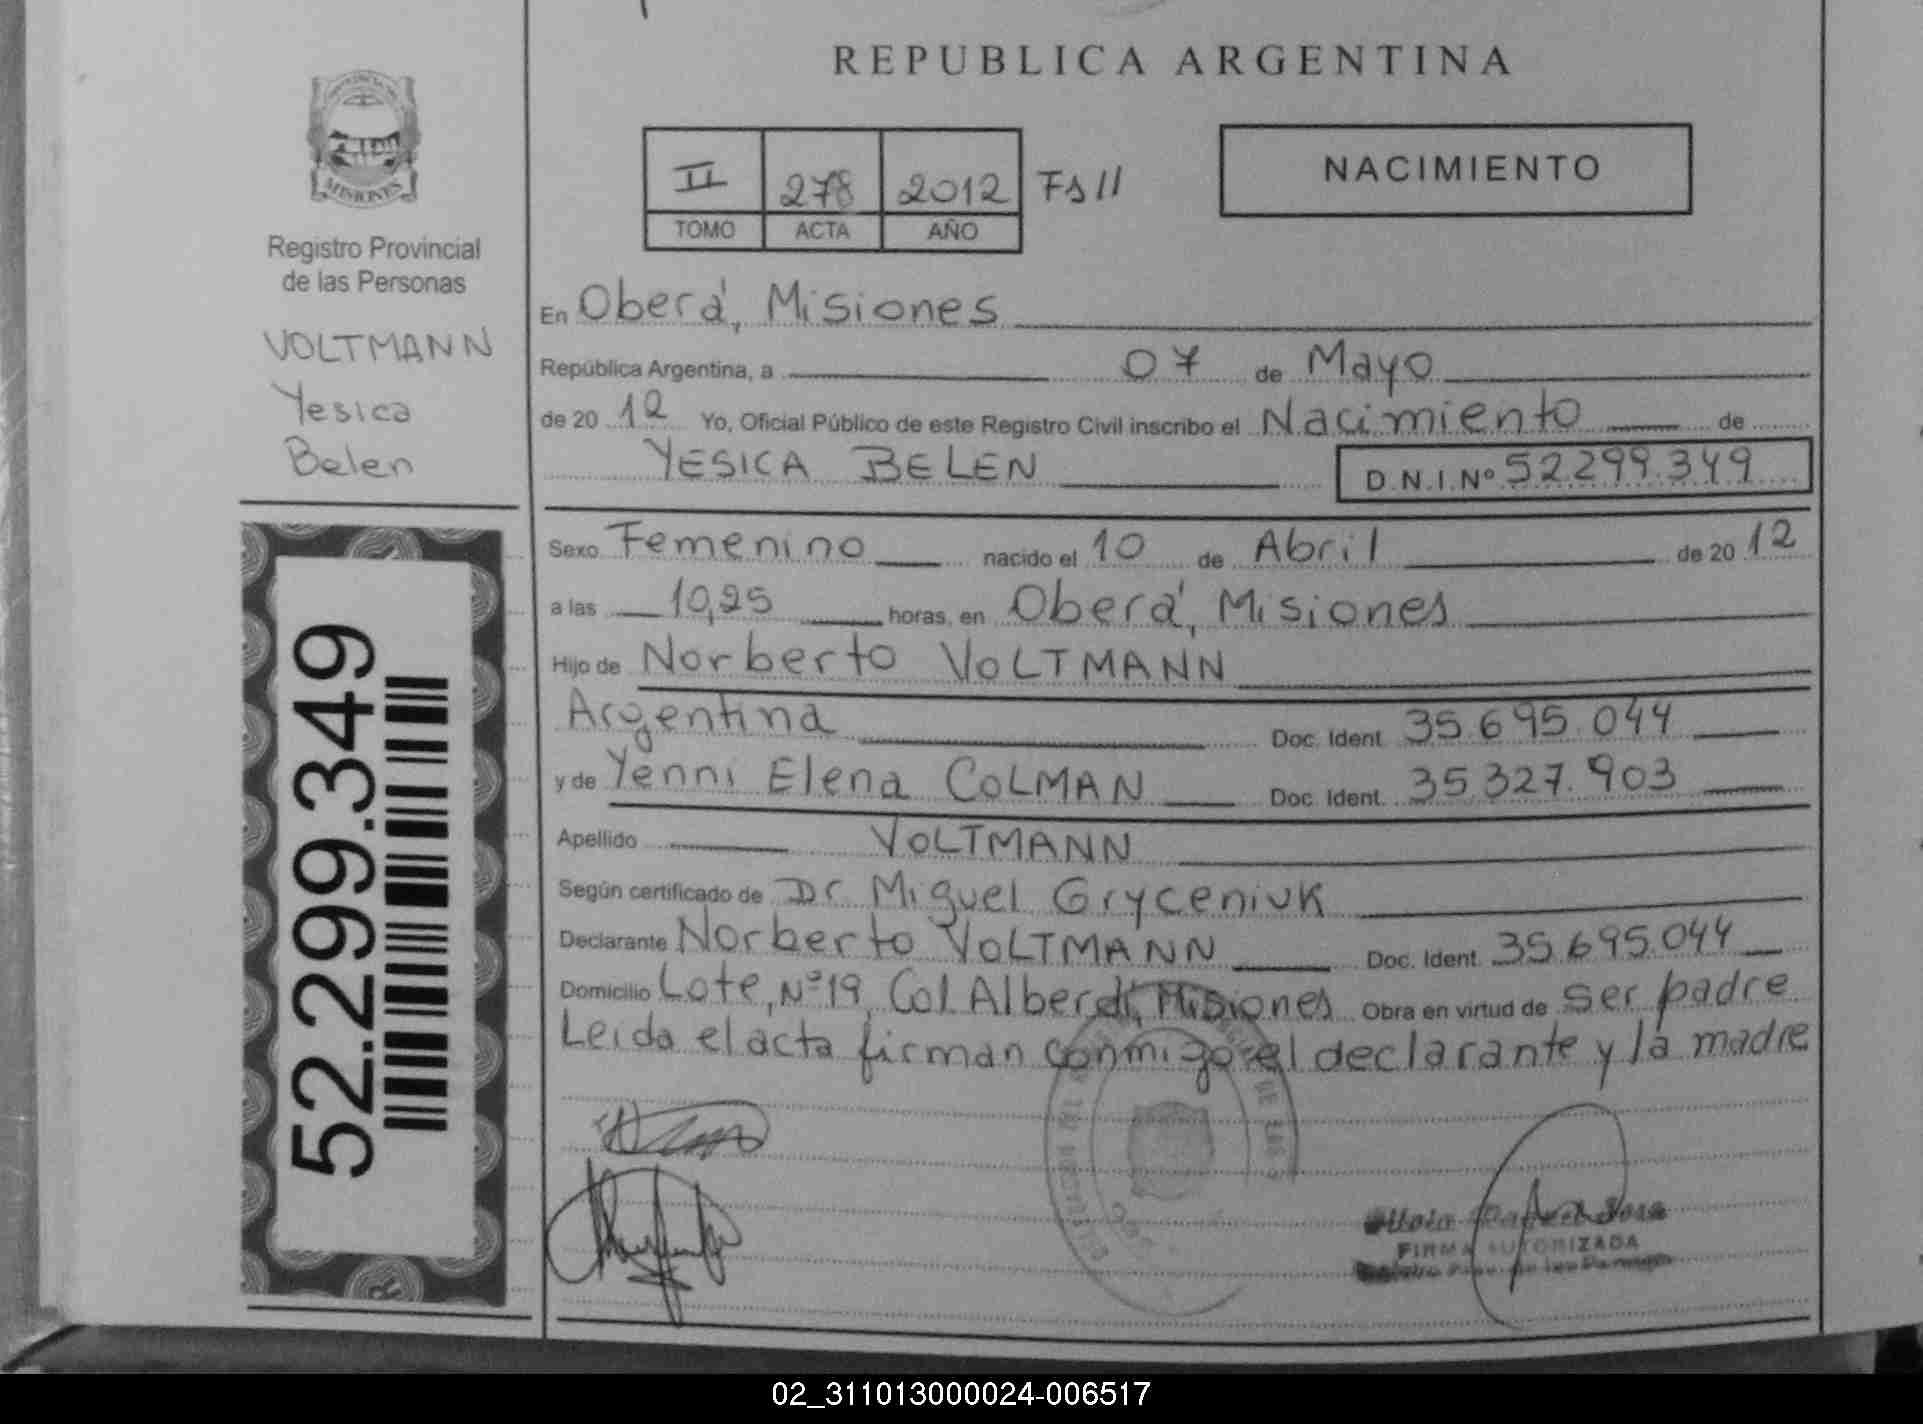 REPUBLICA ARGENTINA
MISIONES
Registro Provincial
de las Personas
VOLTMANN
Yesica
Belen
52.299.349
II 278 2012 Fs 11
TOMO ACTA AÑO
NACIMIENTO
En Oberá, Misiones
República Argentina, a 07 de Mayo
de 20 12 Yo, Oficial Público de este Registro Civil inscribo el Nacimiento de
YESICA BELEN D.N.I.Nº 52.299.349
Sexo Femenino nacido el 10 de Abril de 20 12
a las 10,25 horas, en Oberá, Misiones
Hijo de Norberto VOLTMANN
Argentina Doc. Ident. 35.695.044
y de Yenni Elena COLMAN Doc. Ident. 35.327.903
Apellido VOLTMANN
Según certificado de Dr. Miguel Gryceniuk
Declarante Norberto VOLTMANN Doc. Ident. 35.695.044
Domicilio Lote, Nº 19, Col Alberdi, Misiones Obra en virtud de ser padre
Leida el acta firman conmigo el declarante y la madre
FIRMA AUTORIZADA
02_311013000024-006517